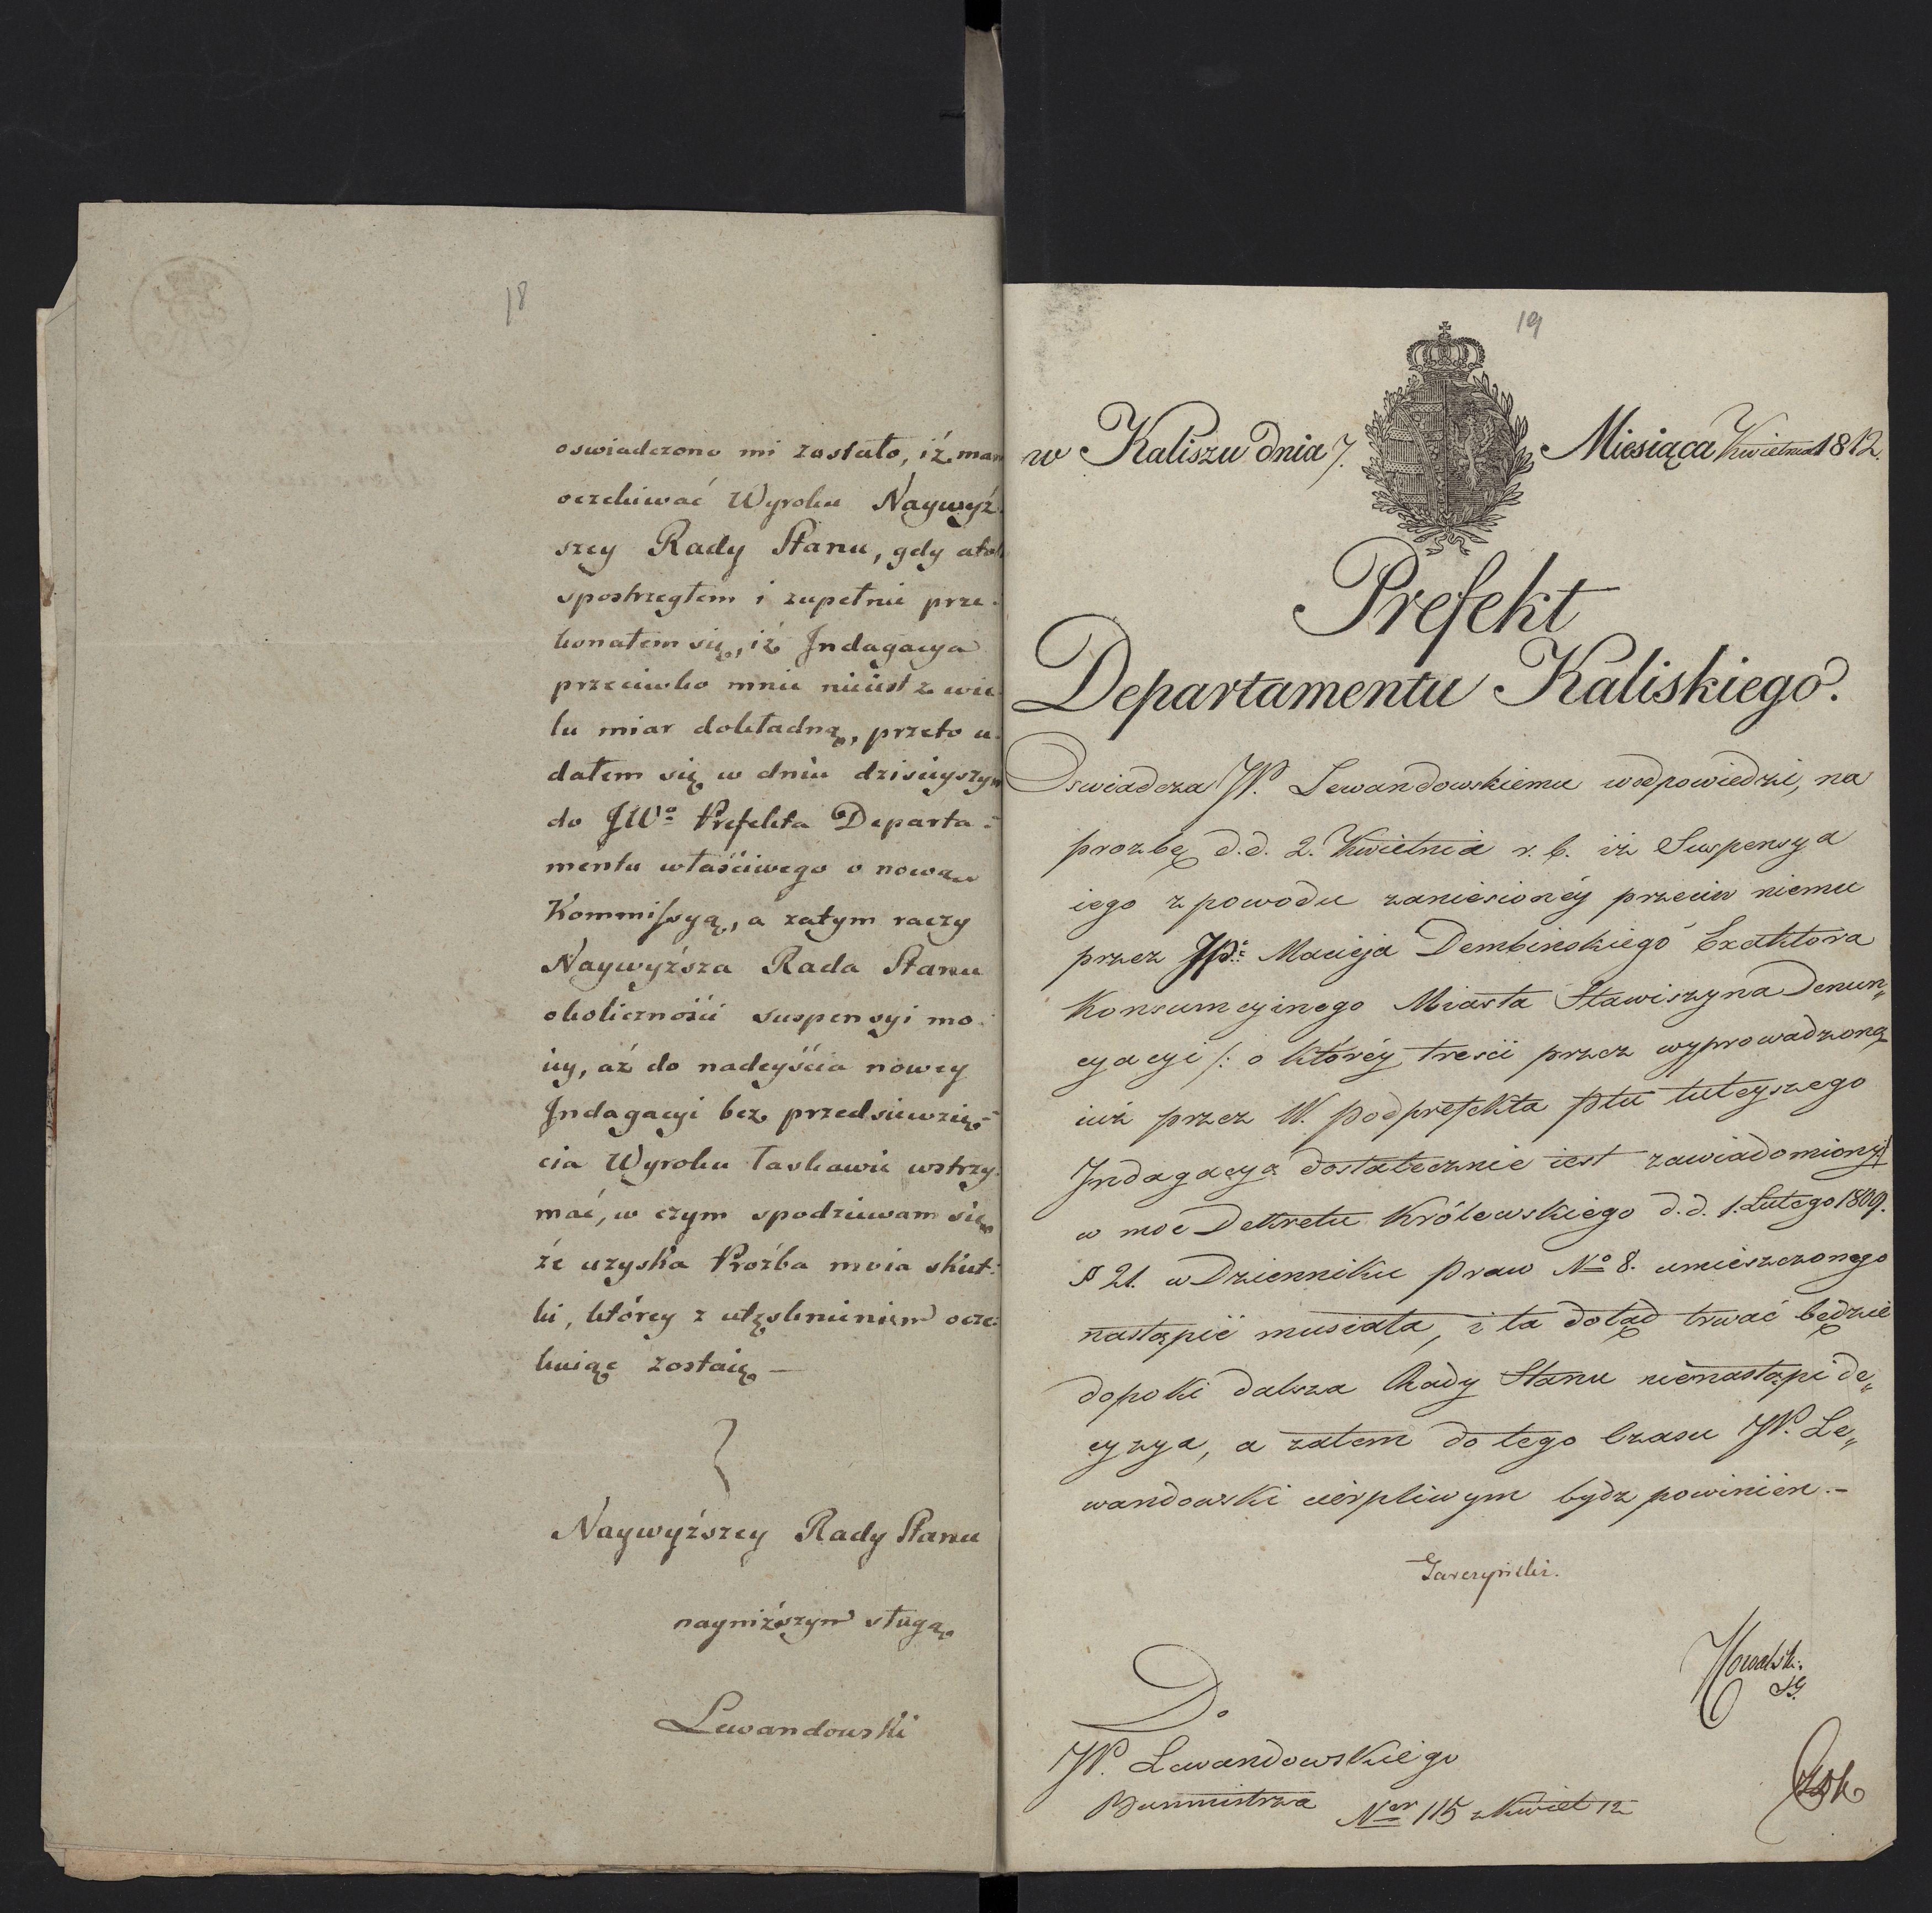 18
oswiadczono mi zostało, iż mam
oczekiwać Wyroku Naywyż=
szey Rady Stanu, gdy atoli
spostrzegłem i zupełnie prze=
konałem się, iż Indagacya
przeciwko mnie nieiest z wie=
lu miar dokładną, przeto u=
dałem się w dniu dzisieyszym
do JWº Prefekta Departa=
mentu właściwego o nową
Kommissyą, a zatym raczy
Naywyższa Rada Stanu
okoliczności suspensyi mo=
iey, aż do nadeyścia nowey
Indagacyi bez przedsiewzię=
cia Wyroku łaskawie wstrzy=
mać, w czym spodziewam się
że uzyska Proźba moia skut=
ki, którey z utęsknieniem ocze=
kuiąc zostaię —
Naywyższey Rady Stanu
nayniższym sługą
Lewandowski
19
w Kaliszu dnia 7. Miesiąca Kwietnia 1812.
Prefekt
Departamentu Kaliskiego.
Oswiadcza JP. Lewandowskiemu w odpowiedzi, na
prozbę d.d. 2. Kwietnia r. b. iż Suspensya
iego z powodu zaniesionéy przeciw niemu
przez JP: Macieja Dembinskiego Exaktora
Konsumcyinego Miasta Stawiszyna Denun„
cyacyi /: o któréy treści przez wyprowadzoną
iuż przez W. Podprefekta Ptu tuteyszego
Indagacyą dostatecznie iest zawiadomiony :/
w moc Dekretu Królewskiego d.d. 1. Lutego 1809.
§ 21. w Dzienniku Praw Nº 8. umieszczonego
nastąpić musiała, i ta dotąd trwać będzie
dopoki dalsza Rady Stanu nienastąpi de„
cyzya, a zatem do tego Czasu JP. Le„
wandowski cierpliwym bydz powinien. –
Garczyński.
Kowalski.
SG.
Do
JP. Lewandowskiego
Burmistrza Ner 115 z Kwiet 12